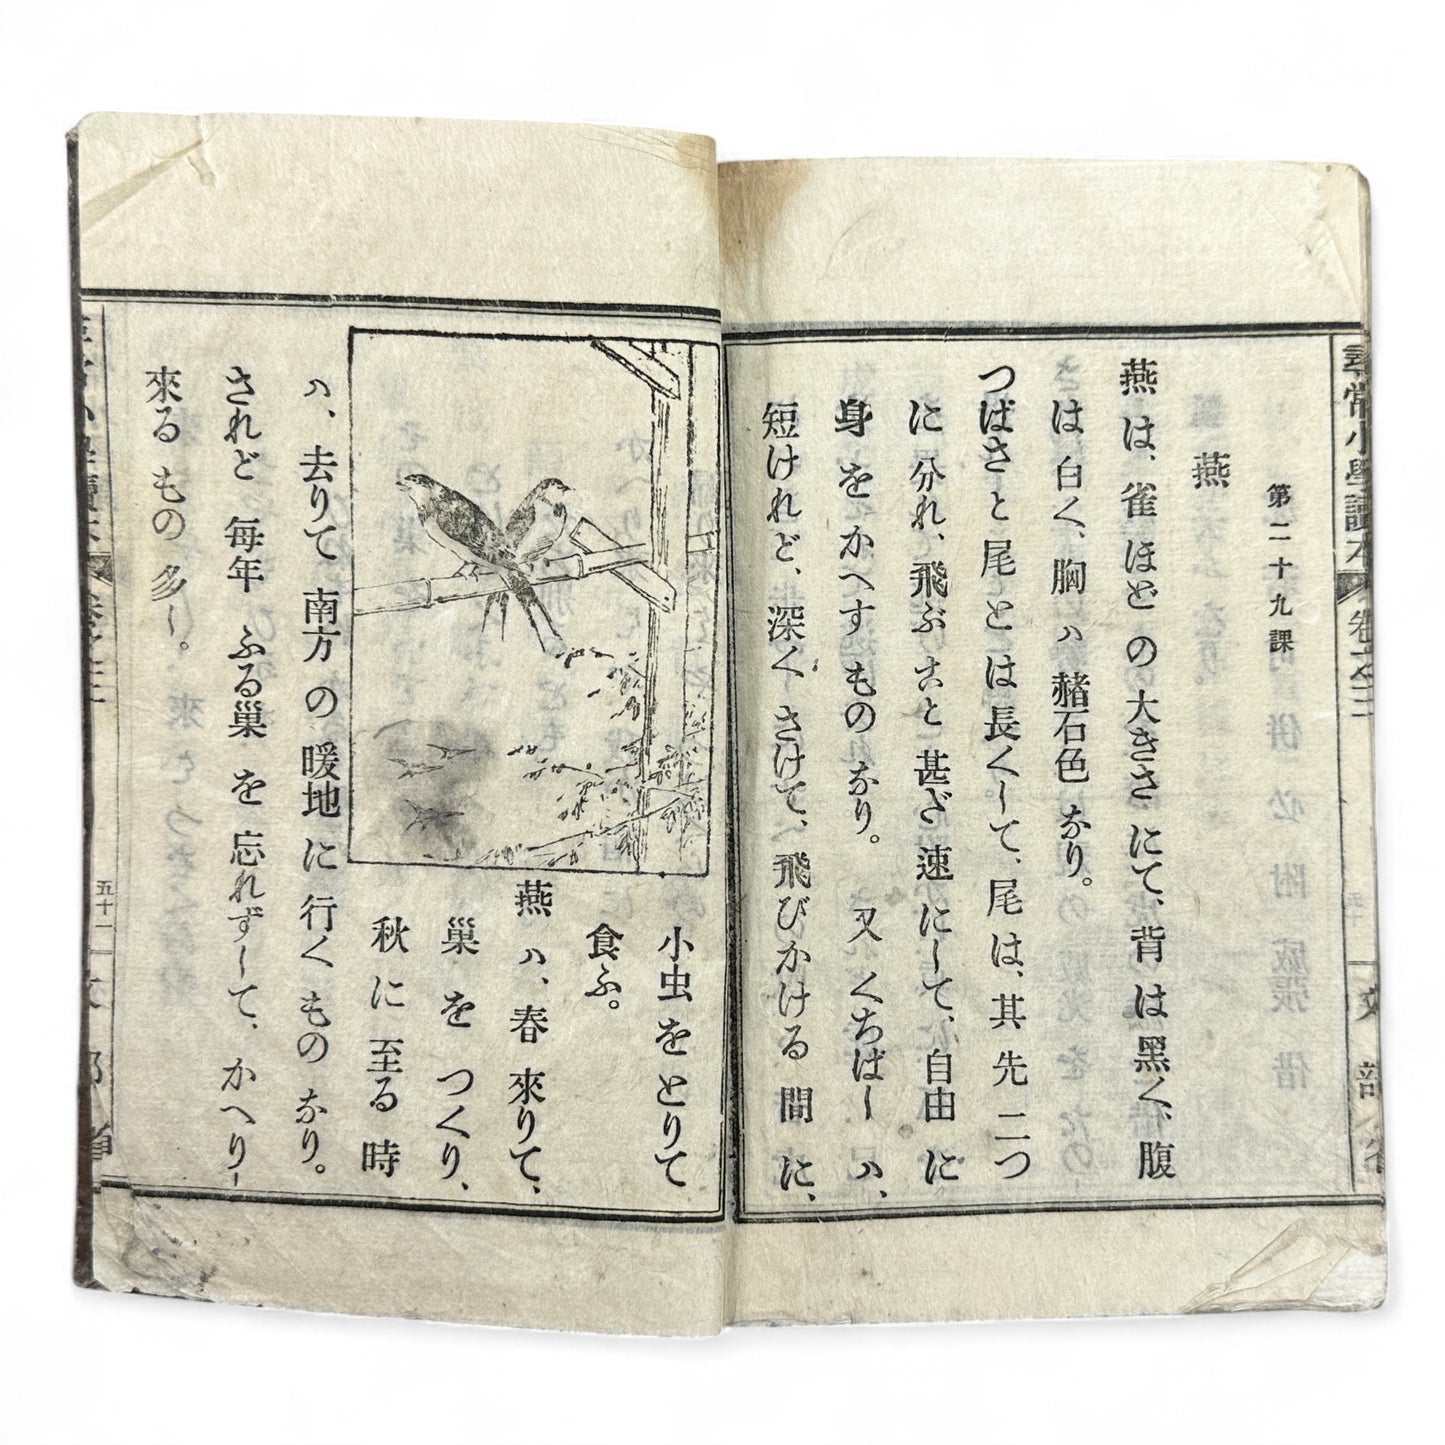 尋常小學讀本 卷之三
文部省
第二十九課
燕
燕は、雀ほどの大きさにて、背は黑く、腹
は白く、胸ハ赭石色なり。
つばさと尾とは長くして、尾は、其先二つ
に分れ、飛ぶこと甚ざ速にして、自由に
身をかへすものなり。又くちばしハ、
短けれど、深くさけて、飛びかける間に、
小虫をとりて
食ふ。
燕ハ、春來りて、
巢をつくり、
秋に至る時
ハ、去りて南方の暖地に行くものなり。
されど每年ふる巢を忘れずして、かへり
來るもの多し。
五十一